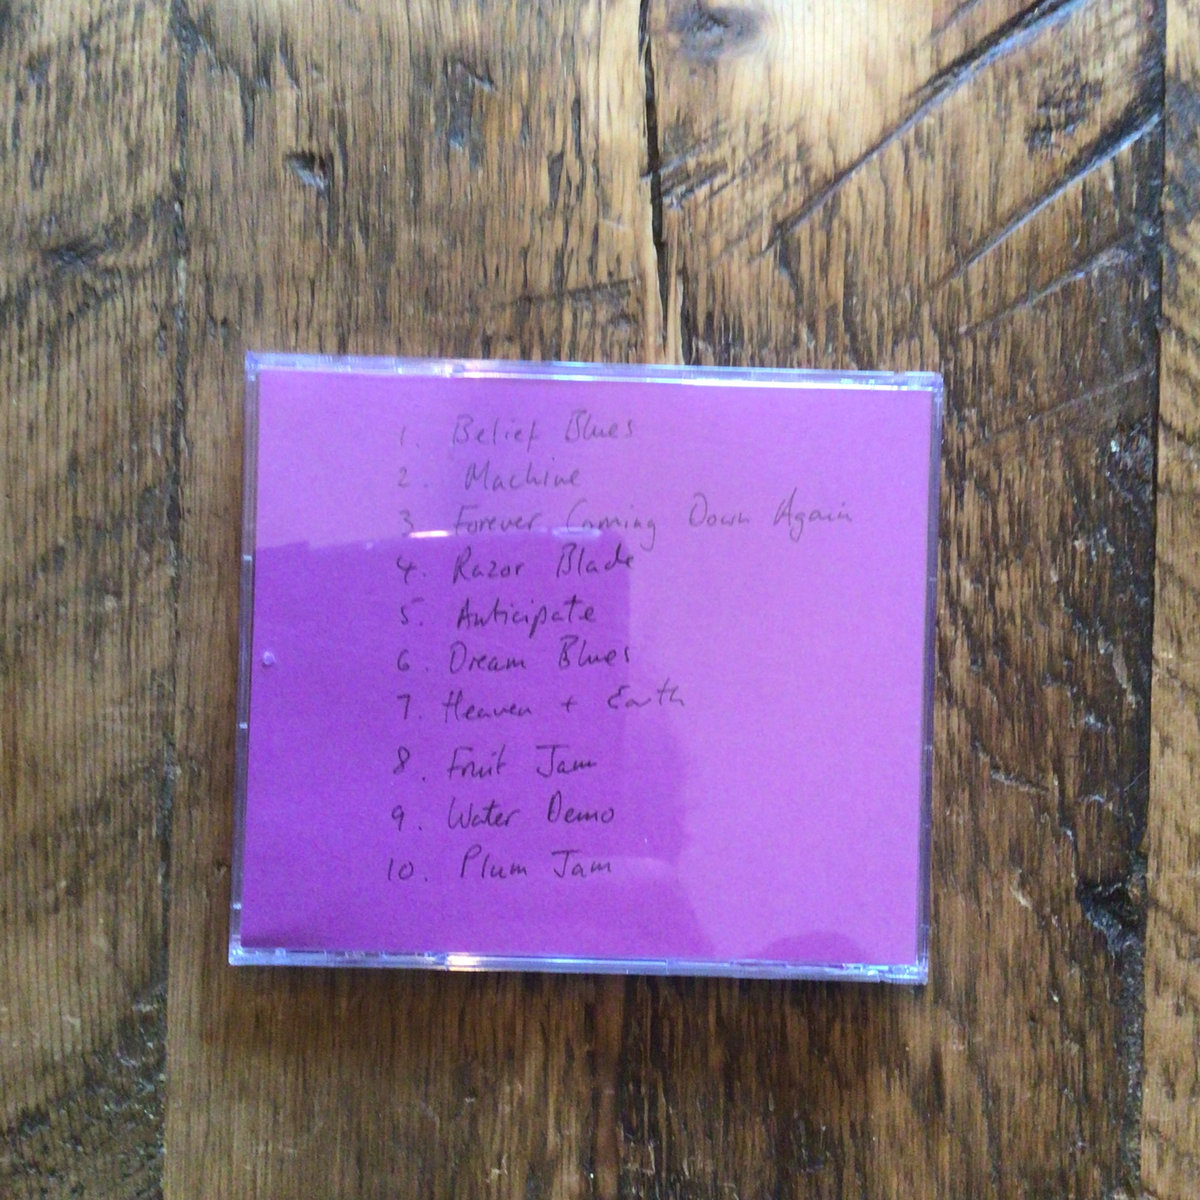 1. Belief Blues
2. Machine
3 Forever Coming Down Again
4. Razor Blade
5. Anticipate
6. Dream Blues
7. Heaven + Earth
8. Fruit Jam
9. Water Demo
10. Plum Jam